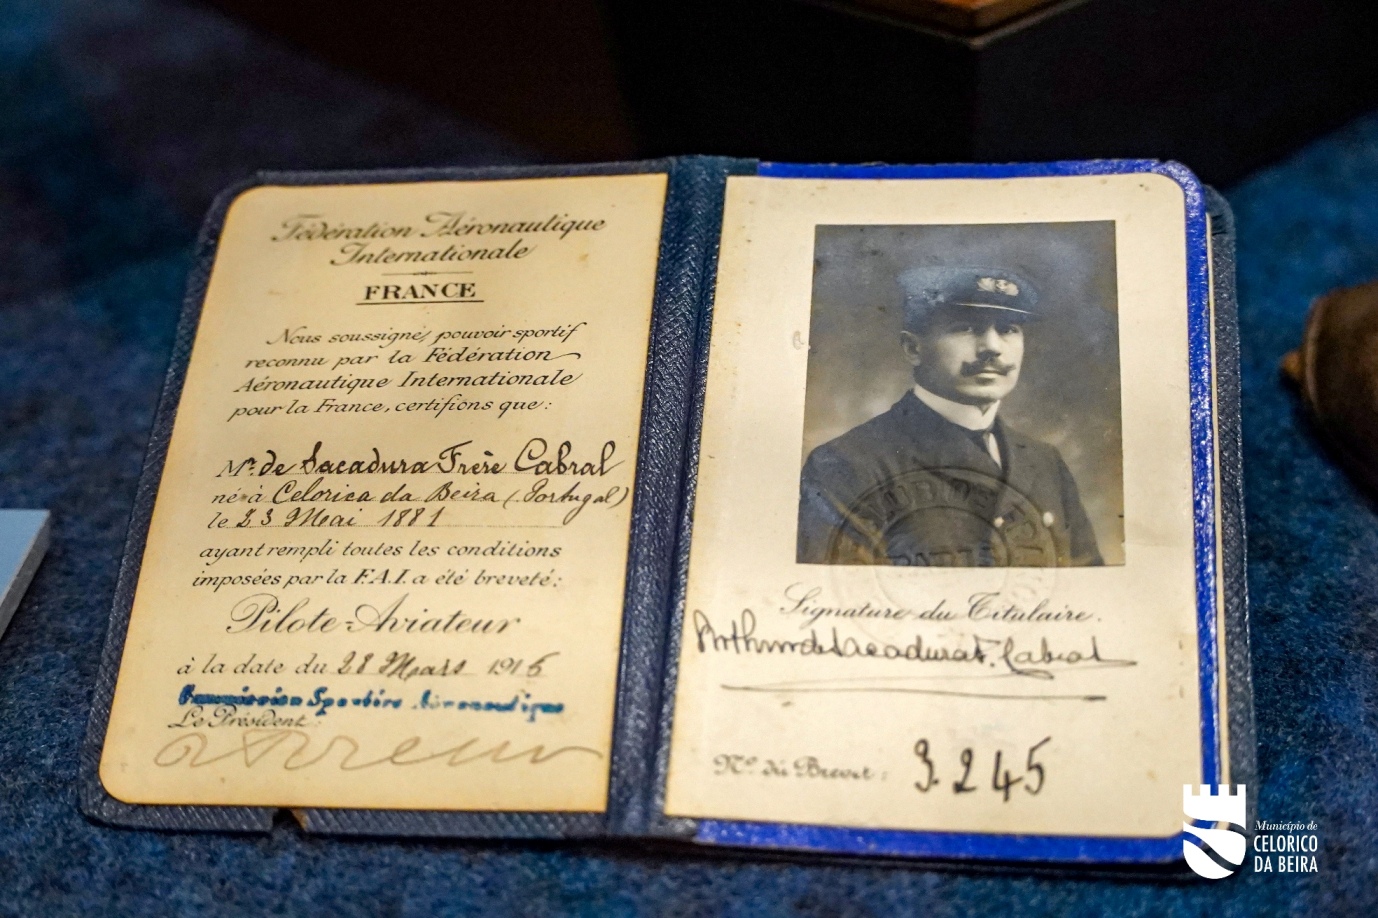 Fédération Aéronautique
Internationale
FRANCE
Nous soussignés, pouvoir sportif
reconnu par la Fédération
Aéronautique Internationale
pour la France, certifions que:
Mr. de Sacadura Frère Cabral
né à Celorica da Beira (Portugal)
le 23 Mai 1881
ayant rempli toutes les conditions
imposées par la F.A.I. a été breveté:
Pilote-Aviateur
à la date du 28 Mars 1916
Commission Sportive Aéronautique
Le Président:
CLUB DE
PARIS
Signature du Titulaire.
Arthur de Sacadura F. Cabral
No. du Brevet: 3.245
Município de
CELORICO
DA BEIRA